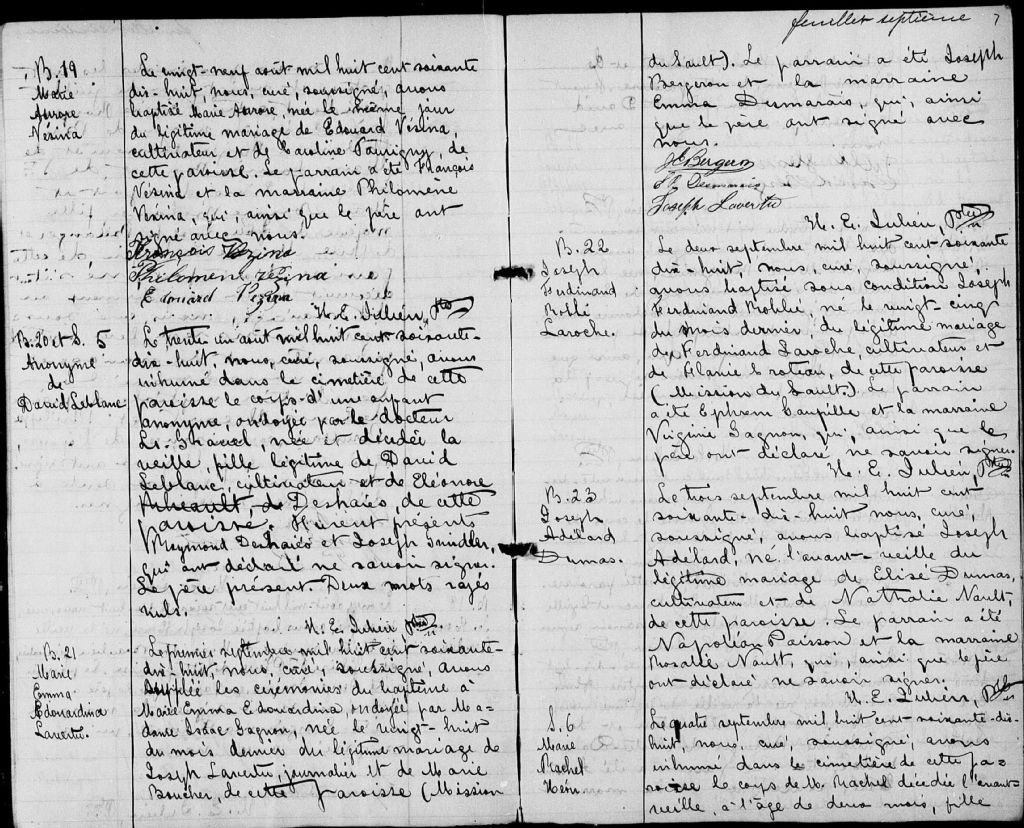 B. 19
Marie
Aurore
Vésina
Le vingt-neuf août mil huit cent soixante
dix-huit, nous, curé, soussigné, avons
baptisé Marie Aurore, née le même jour
du légitime mariage de Edouard Vésina,
cultivateur et de Caroline
cette paroisse. Le parrain a été François
Vésina et la marraine Philomène
Vésina, qui, ainsi que le père ont
signé avec nous.
François Vezina
Philomene vezina
Edouard Vezina
H. E. Julien, Ptre
B. 20 et S. 5
Anonyme
de
David Leblanc
Le trente un août mil huit cent soixante-
dix-huit, nous, curé, soussigné, avons
inhumé dans le cimetière de cette
paroisse le corps d'une enfant
anonyme, ondoyée par le docteur
Ls Gravel, née et décédée la
veille, fille légitime de David
Leblanc, cultivateur et de Eléonore
de Deshaies, de cette
paroisse. Furent présents
Raymond Deshaies et Joseph
qui ont déclaré ne savoir signer.
Le père présent. Deux mots rayés
nuls.
H. E. Julien Ptre
B. 21
Marie
Emma
Edouardina
Lavertu.
Le premier septembre mil huit cent soixante-
dix-huit, nous, curé, soussigné, avons
suppléé les cérémonies du baptême à
Marie Emma Edouardina, ondoyée par Ma-
dame Isaac Gagnon, née le vingt-huit
du mois dernier du légitime mariage de
Joseph Lavertu, journalier et de Marie
Boucher, de cette Paroisse (Mission
feuillet septième 7
du Sault). Le parrain a été Joseph
Bergeron et la marraine
Emma Desmarais, qui, ainsi
que le père ont signé avec
nous.
Bergeron
Desmarais
Joseph Lavertu
H. E. Julien, Ptre
B. 22
Joseph
Ferdinand
Noblé
Laroche.
Le deux septembre mil huit cent soixante
dix-huit, nous, curé, soussigné,
avons baptisé sous condition Joseph
Ferdinand Noblé, né le vingt-cinq
du mois dernier du légitime mariage
de Ferdinand Laroche, cultivateur et
de Croteau, de cette paroisse
(Mission du Sault). Le parrain
a été Ephrem et la marraine
Virginie Gagnon, qui, ainsi que le
père ont déclaré ne savoir signer.
H. E. Julien, Ptre
B. 23
Joseph
Adélard
Dumas.
Le trois septembre mil huit cent
soixante-dix-huit nous, curé,
soussigné, avons baptisé Joseph
Adélard, né l'avant-veille du
légitime mariage de Elisé Dumas,
cultivateur et de Nathalie Nault,
de cette paroisse. Le parrain a été
Napoléon Poisson et la marraine
Rosalie Nault, qui, ainsi que le père
ont déclaré ne savoir signer.
H. E. Julien, Ptre
S. 6
Marie
Rachel
Le quatre septembre mil huit cent soixante-dix-
huit, nous, curé, soussigné, avons
inhumé dans le cimetière de cette pa-
roisse le corps de M. Rachel décédée l'avant-
veille, à l'âge de deux mois, fille